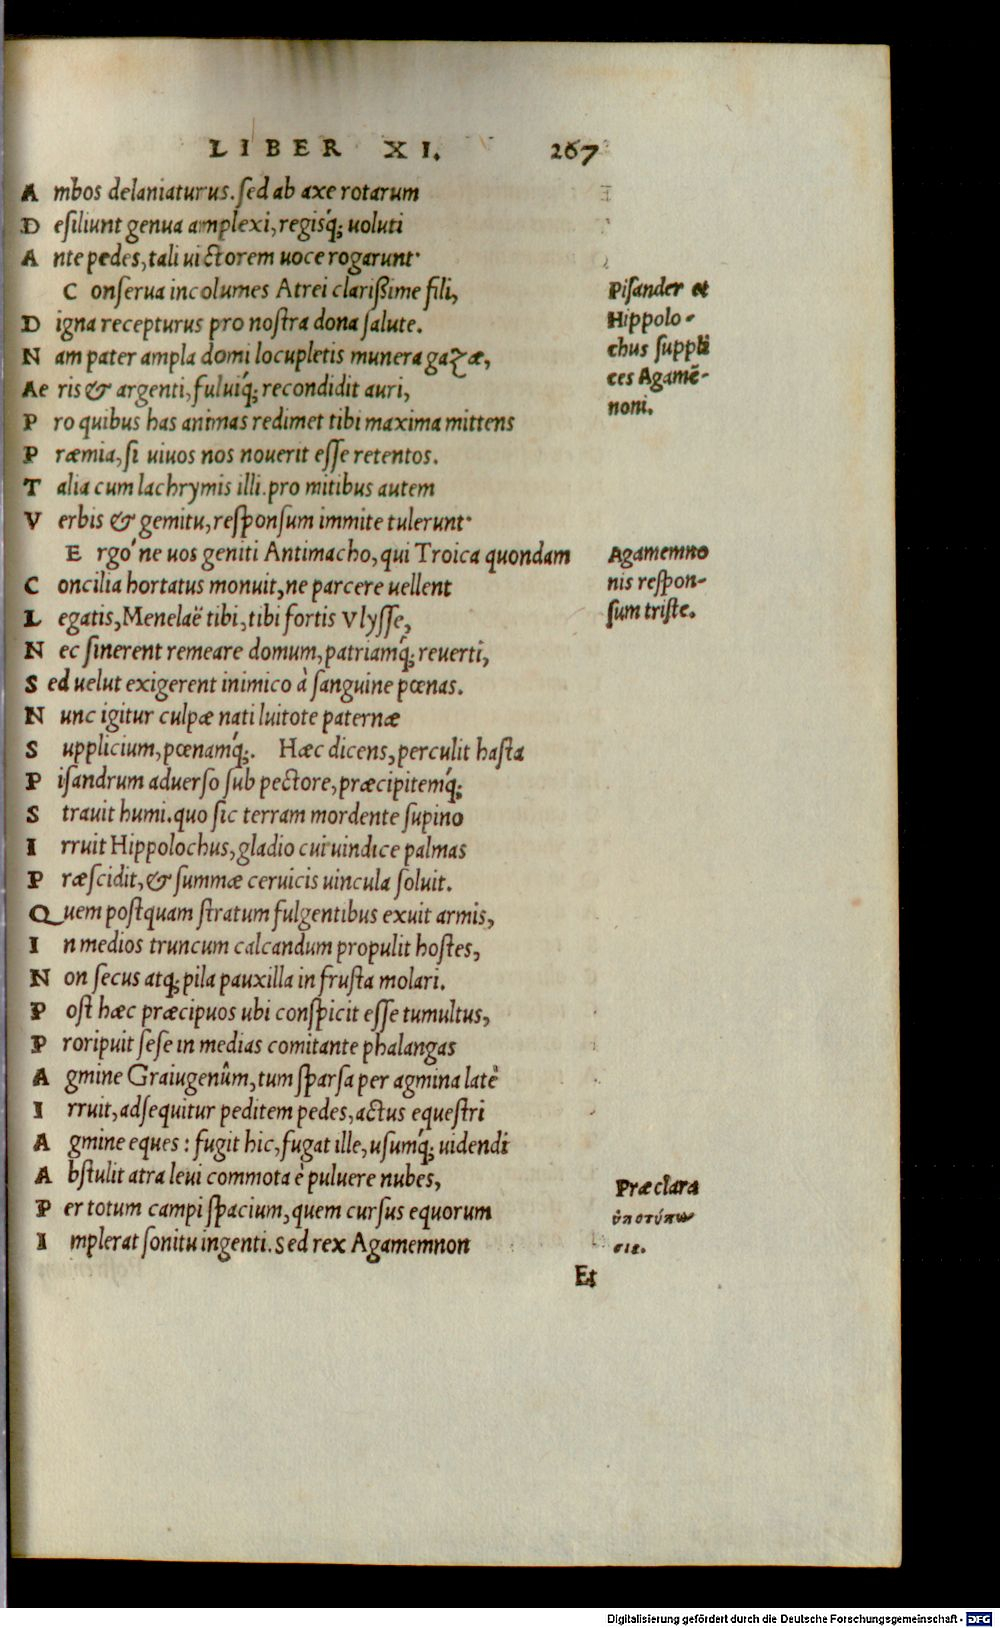 LIBER XI. 267
Ambos delaniaturus. ſed ab axe rotarum
Deſiliunt genua amplexi, regisq́; uoluti
Ante pedes, tali uictorem uoce rogarunt·
Conſerua incolumes Atrei clarißime fili,
Digna recepturus pro noſtra dona ſalute.
Nam pater ampla domi locupletis munera gazæ,
Aeris & argenti, fuluiq́; recondidit auri,
Pro quibus has animas redimet tibi maxima mittens
Præmia, ſi uiuos nos nouerit eſſe retentos.
Talia cum lachrymis illi. pro mitibus autem
Verbis & gemitu, reſponſum immite tulerunt·
Ergo' ne uos geniti Antimacho, qui Troica quondam
Concilia hortatus monuit, ne parcere uellent
Legatis, Menelaë tibi, tibi fortis Vlyſſe,
Nec ſinerent remeare domum, patriamq́; reuerti,
Sed uelut exigerent inimico à ſanguine pœnas.
Nunc igitur culpæ nati luitote paternæ
Supplicium, pœnamq́;. Hæc dicens, perculit haſta
Piſandrum aduerſo ſub pectore, præcipitemq́;
Strauit humi. quo ſic terram mordente ſupino
Irruit Hippolochus, gladio cui uindice palmas
Præſcidit, & ſummæ ceruicis uincula ſoluit.
Quem poſtquam ſtratum fulgentibus exuit armis,
In medios truncum calcandum propulit hoſtes,
Non ſecus atq; pila pauxilla in fruſta molari.
Poſt hæc præcipuos ubi conſpicit eſſe tumultus,
Proripuit ſeſe in medias comitante phalangas
Agmine Graiugenûm, tum ſparſa per agmina latè
Irruit, adſequitur peditem pedes, actus equeſtri
Agmine eques: fugit hic, fugat ille, uſumq́; uidendi
Abſtulit atra leui commota è puluere nubes,
Per totum campi ſpacium, quem curſus equorum
Implerat ſonitu ingenti. Sed rex Agamemnon
Et
Piſander et
Hippolo-
chus ſuppli
ces Agamē-
noni.
Agamemno
nis reſpon-
ſum triſte.
Præclara
ὑποτύπω
σις.
Digitalisierung gefördert durch die Deutsche Forschungsgemeinschaft - DFG